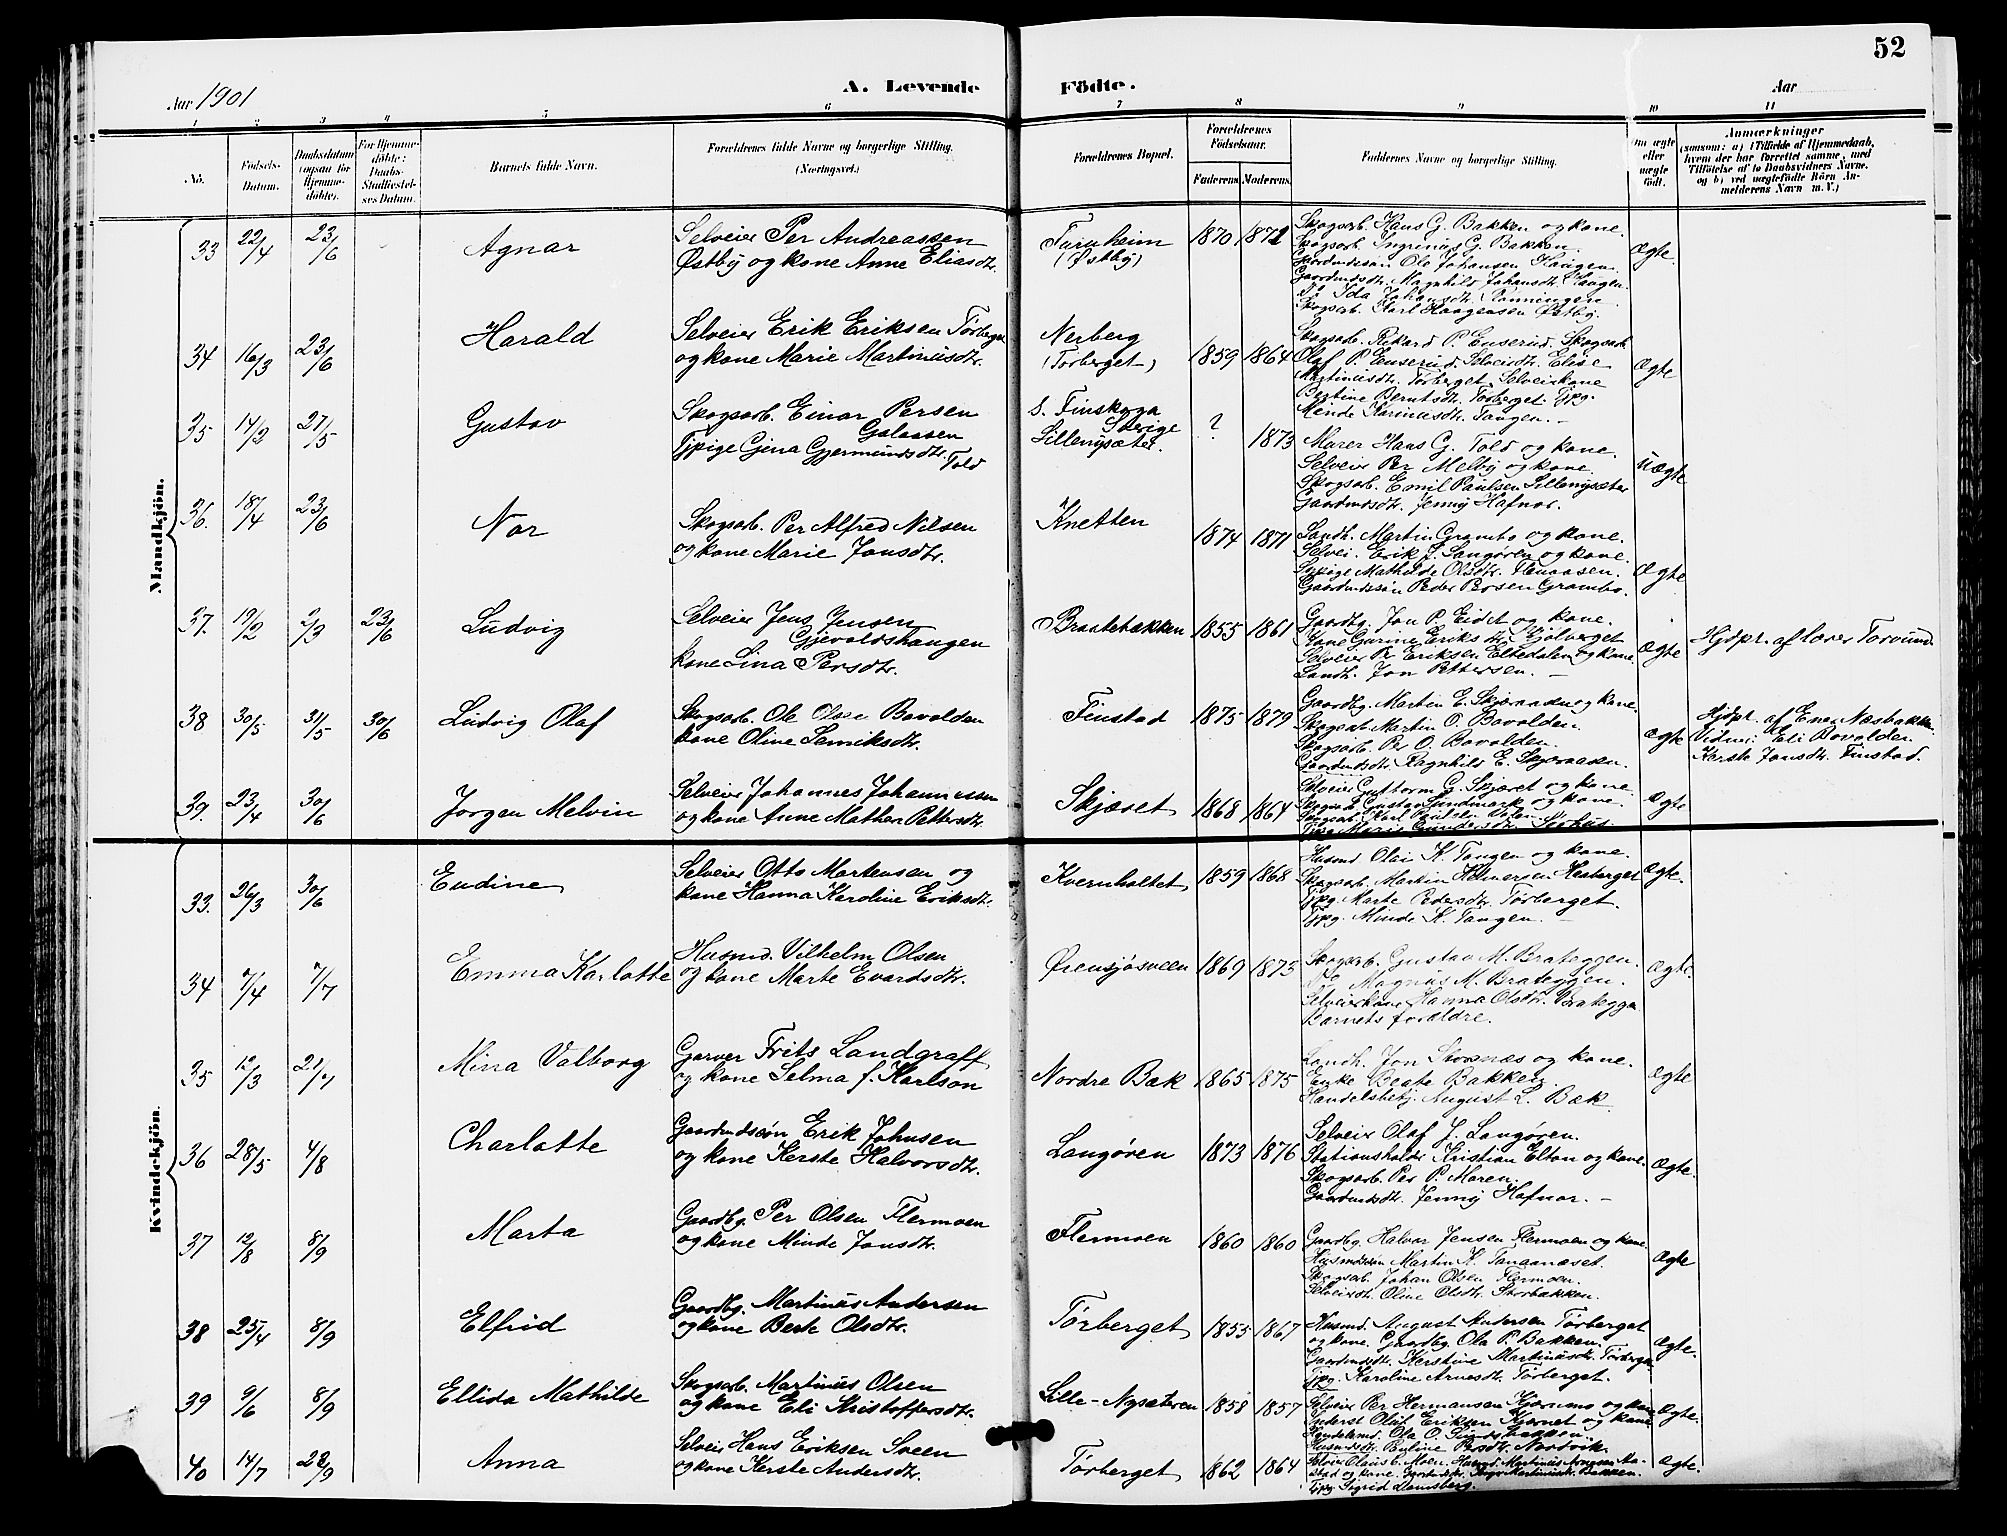 52
Aar 1901
A. Levende
Födte.
Aar
1 2 3 4 5 6 7 8 9 10 11
No.
Födsels-Datum.
Daabsdatum (ogsaa for Hjemme-döbte).
For Hjemme-döbte: Daabs-Stadfæstel-ses Datum.
Barnets fulde Navn.
Forældrenes fulde Navne og borgerlige Stilling. (Næringsvei.)
Forældrenes Bopæl.
Forældrenes Födselsaar.
Faderens. Moderens.
Faddernes Navne og borgerlige Stilling.
Om ægte eller uægte født.
Anmærkninger
(saasom: a) i Tilfælde af Hjemmedaab, hvem der har forrettet samme, med Tilföielse af to Daabsvidners Navne, og b) ved uægtefödte Börn An-melderens Navn m. V.)
Mandkjön.
33 22/4 23/6 Agnar
Selveier Per Andreassen
Østby og kone Anne Eliasdtr.
Furuheim
(Østby)
1870 1872
Skogsarb. Hans G. Bakken og kone.
Skogsarb. Ingvinius G. Bakken.
Gaardmdssøn Ole Johansen Haugen.
Gaardmdsdtr. Magnhild Johansdtr. Haugen.
Ida Johansdtr. Rønningen
Skogsarb. Karl Haagensen Østby.
ægte.
34 16/3 23/6 Harald
Selveier Erik Eriksen Tørberget
og kone Marie Martinusdtr.
Nerberg
(Torberget)
1859 1864
Skogsarb. Rikard P. Enserud. Skogsarb.
Olaf P. Enserud. Selveierdtr. Elise
Martinusdtr. Tørberget. Selveierkone
Bertine Berntsdtr. Tørberget. Tjpg.
Minde Tangen.
ægte
35 14/2 27/5 Gustav
Skogsarb. Einar Persen
Galaasen
Tjpige Gjena Gjermundsdtr. Told
S. Finskoga
Sverige
Lillenysæter.
? 1873
Murer Hans G. Told og kone.
Selveier Per Melby og kone.
Skogsarb. Emil Paulsen Lillenysæter
Gaardmdsdtr. Jenny Hafnor.
uægte
36. 18/4 23/6 Nor
Skogsarb. Per Alfred Nilsen
og kone Marie Jonsdtr.
Knetten
1874 1871
Landh. Martin Grambo og kone.
Selvei. Erik J. Langøren og kone.
Mathilde Olsdtr.
Gaardmdssøn Peder Persen Grambo.
ægte
37. 19/2 2/3 23/6 Ludvig
Selveier Jens Jensen
Gjevaldshaugen
kone Lina Persdtr.
Braatebækken
1855 1861
Gaardbg. Jon P. Eidet og kone.
Kone Gurine Eriksdtr. Kjølberget
Selveier Per Eriksen Eltedalen og kone
Landh. Jon Pettersen.
ægte
Hjdpt. af lærer Torvund
38 30/5 31/5 30/6 Ludvig Olaf
Skogsarb. Ole Olsen Bovolden
kone Oline Semiksdtr.
Finstad
1875 1879
Gaardbg. Martin E. Skjæraasen og kone.
Skogsarb. Martin O. Bovolden.
Skogsarb. Per O. Bovolden.
Gaardmdsdtr. Ragnhild E. Skjæraasen.
ægte
Hjdpt. af Ener Næsbakken
Vidner: Eli Bovolden
Kerste Jonsdtr. Finstad.
39. 23/4 30/6 Jørgen Melvin
Selveier Johannes Johannessen
og kone Anne Mathea Pettersdtr.
Skjæret
1868 1864
Selveier Guttorm G. Skjæret og kone.
Gustav Sundmark og kone.
Skogsarb. Karl Paulsen
Tjpg. Marie Gundersdtr.
ægte
Kvindekjön.
33. 26/3 30/6 Eudine
Selveier Otto Martensen og
kone Hanna Karoline Eriksdtr.
Kvernholtet
1859 1868
Husmd. Olai K. Tangen og kone.
Skogsarb. Martin Helmersen
Tjpg. Marte Pedersdtr. Tørberget.
Tjpg. Minde K. Tangen.
ægte.
34 7/4 7/7 Emma Karlotte
Husmd. Vilhelm Olsen
og kone Marte Evardsdtr.
Ørensjøsveen
1869 1873
Skogsarb. Gustav M. Brateggen.
Do Magnus M. Brateggen.
Selveierkone Hanna Olsdtr. Brateggen
Barnets forældre.
ægte.
35 12/3 21/7 Mina Valborg
Garver Frits Landgraff
og kone Selma f. Karlson
Nordre Bæk
1865 1875
Landh. Jon Stornæs og kone.
Enke Beate Bakken.
Handelsbetj. August L. Bæk.
ægte
36 28/5 4/8 Charlotte
Gaardmdssøn Erik Johnsen
og kone Kerste Halvorsdtr.
Langøren
1873 1876
Selveier Olaf J. Langøren.
Stationsholder Kristian Elton og kone.
Skogsarb. Per P. Moren.
Gaardmdsdtr. Jenny Hafnor.
ægte.
37 12/8 8/9 Marta
Gaardbg. Per Olsen Flermoen
og kone Minde Jonsdtr.
Flermoen
1860 1860
Gaardbg. Halvor Jensen Flermoen og kone.
Husmdssøn Martin K. Tanaanæset.
Skogsarb. Johan Olsen Flermoen.
Selveierdtr. Oline Olsdtr. Storbækken.
ægte
38 25/4 8/9 Elfrid
Gaardbg. Martinus Andersen
og kone Berte Olsdtr.
Tørberget
1855 1867
Husmd. August Andersen Tørberget
og kone. Gaardbg. Ola P. Bakken.
Gaardmdsdtr. Kerstine Martinusdtr. Tørberget
Tjpg. Karoline Arnesdtr. Tørberget.
ægte.
39 9/6 8/9 Ellida Mathilde
Skogsarb. Martinus Olsen
og kone Eli Kristoffersdtr.
Lille-Nysæteren
1858 1857
Selveier Per Hermansen Kjærnmo og kone
Inderst Olaf Eriksen Kjærnet og kone
Ola O.
Husmdsdtr. Pauline Persdtr. Nordvik.
ægte.
40 14/7 22/9 Anna
Selveier Hans Eriksen Sveen
og kone Kerste Andersdtr.
Tørberget
1862 1864
Selveier Olaus C. Moen. Husmd. Martinus Arnesen Aa-
stad og kone. Gaardmdsdtr. Inga Martinusdtr. Bakken.
Tjpg. Sigrid
ægte.